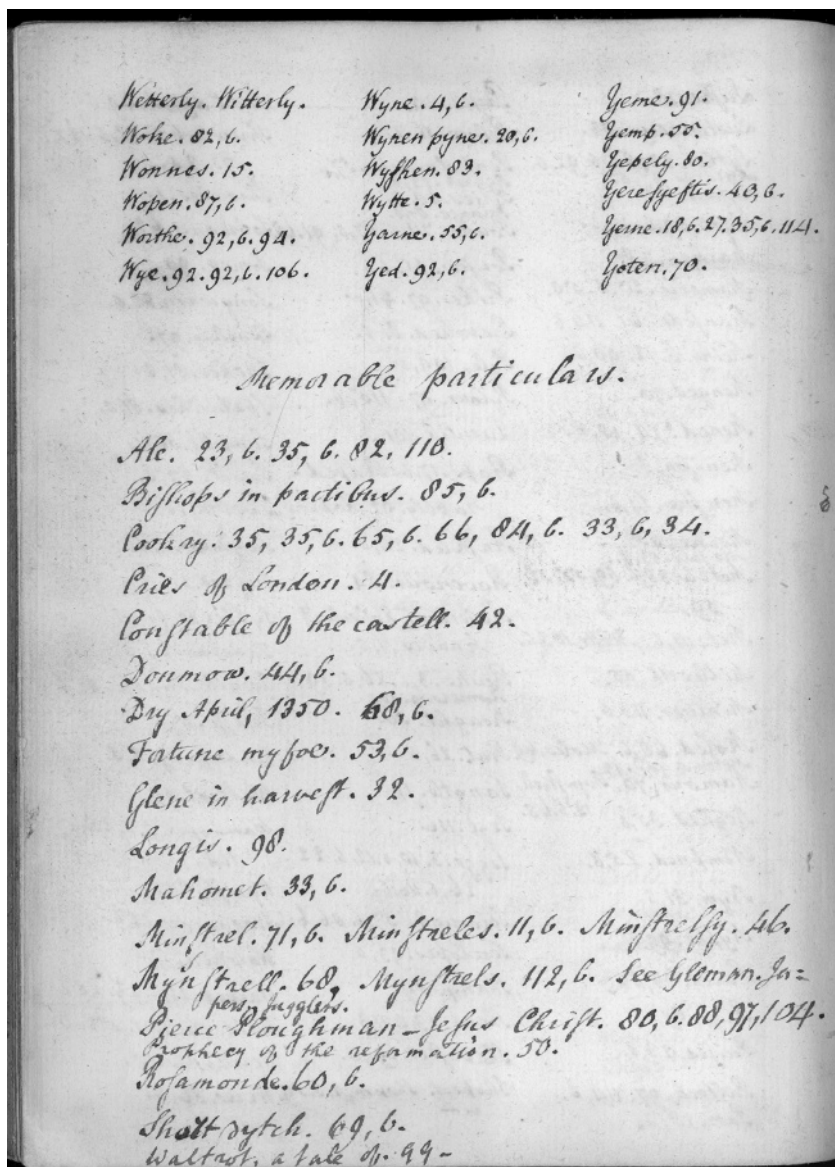 Wetterly. Witterly.
Woke. 82,6.
Wonnes. 15.
Wopen. 87,6.
Worthe. 92,6.94.
Wye. 92.92,6.106.
Wyne. 4,6.
Wynen pyne. 20,6.
Wyſhen. 83.
Wytte. 5.
Yarne. 55,6.
Yed. 92,6.
Yeme. 91.
Yemp. 55.
Yepely. 80.
Yereſyeftis. 40,6.
Yerne. 18,6.27.35,6.114.
Yoten. 70.
Memorable particulars.
Ale. 23, 6. 35, 6. 82, 110.
Biſhops in partibus. 85, 6.
Cookry. 35, 35,6. 65,6. 66, 84,6. 33,6,34.
Cries of London. 4.
Conſtable of the castell. 42.
Donmow. 44,6.
Dry April, 1350. 68,6.
Fortune my foe. 53,6.
Glene in harveſt. 32.
Longis. 98.
Mahomet. 33, 6.
Minſtrel. 71, 6. Minſtreles. 11, 6. Minſtrelſy. 46.
Mynſtrell. 68, Mynſtrels. 112, 6. See Gleman. Ja=
pers. Jugglers.
Pierce Ploughman – Jeſus Chriſt. 80,6.88,97,104.
Prophecy of the reformation. 50.
Roſamonde. 60, 6.
Short dytch. 69, 6.
Waltrot, a tale of. 99–